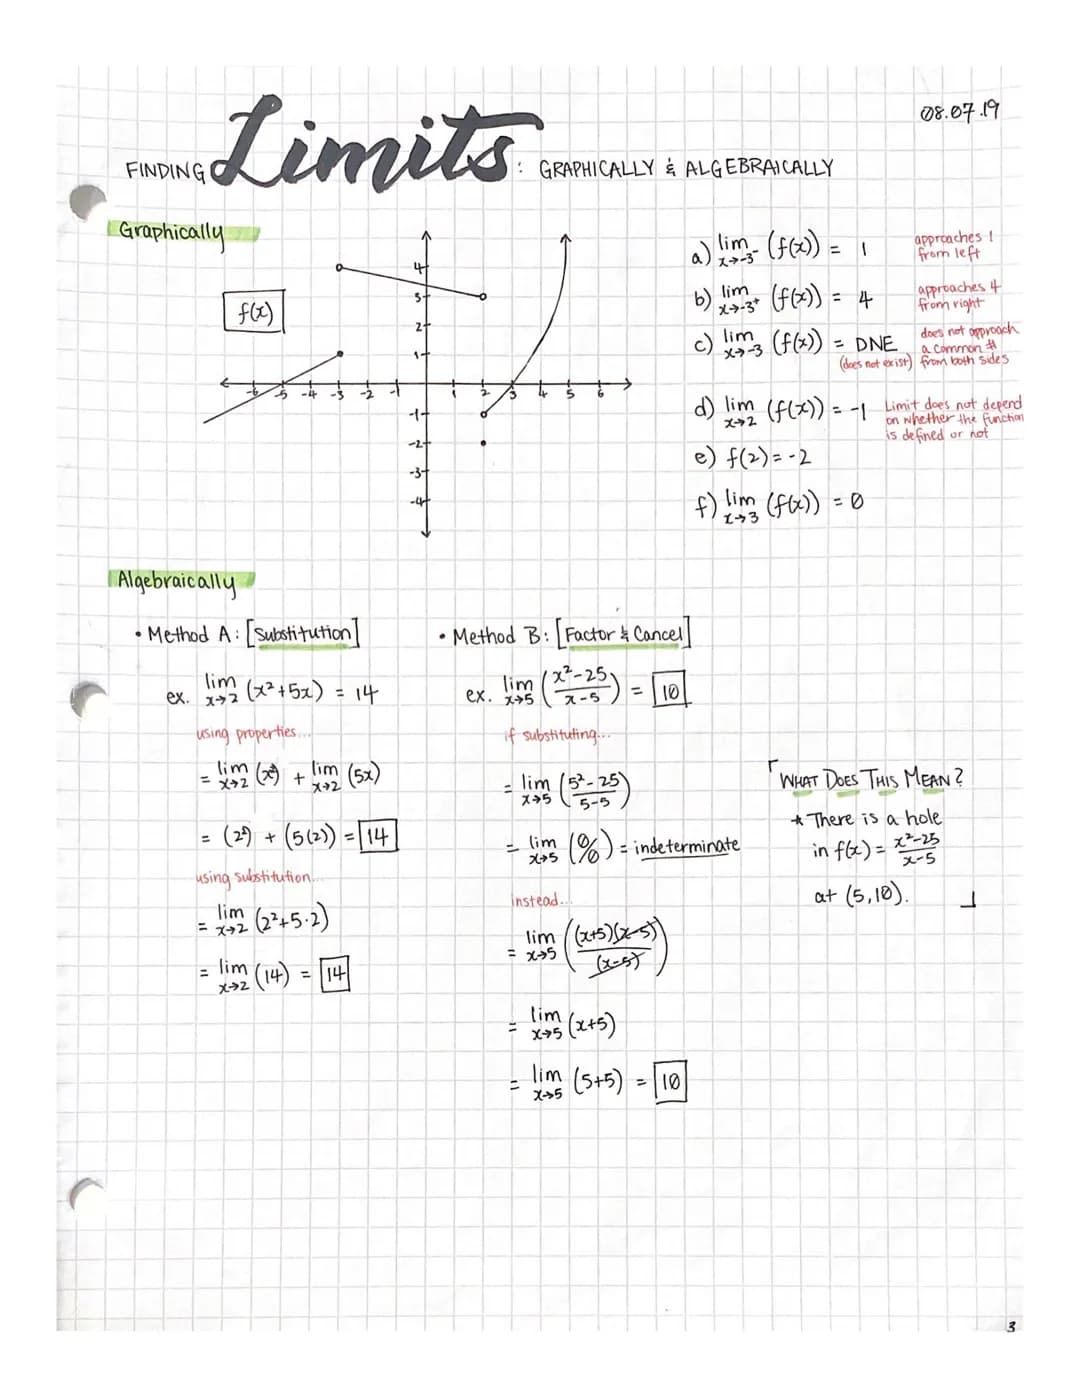 08.07.19
FINDING Limits: GRAPHICALLY & ALGEBRAICALLY
Graphically
f(x)
4
3
2
1
-6 -5 -4 -3 -2 -1 1 2 3 4 5 6
-1
-2
-3
-4
a) lim x→-3⁻ (f(x)) = 1 approaches 1 from left
b) lim x→-3⁺ (f(x)) = 4 approaches 4 from right
c) lim x→-3 (f(x)) = DNE (does not exist) does not approach a common # from both sides
d) lim x→2 (f(x)) = -1 Limit does not depend on whether the function is defined or not
e) f(2) = -2
f) lim x→3 (f(x)) = 0
Algebraically
• Method A: [Substitution]
ex. lim x→2 (x²+5x) = 14
using properties...
= lim x→2 (x²) + lim x→2 (5x)
= (2²) + (5(2)) = 14
using substitution...
= lim x→2 (2²+5·2)
= lim x→2 (14) = 14
• Method B: [Factor & Cancel]
ex. lim x→5 (x²-25/x-5) = 10
if substituting...
= lim x→5 (5²-25/5-5)
= lim x→5 (0/0) = indeterminate
instead...
= lim x→5 ((x+5)(x-5)/(x-5))
= lim x→5 (x+5)
= lim x→5 (5+5) = 10
WHAT DOES THIS MEAN?
* There is a hole
in f(x) = x²-25/x-5
at (5,10).
3